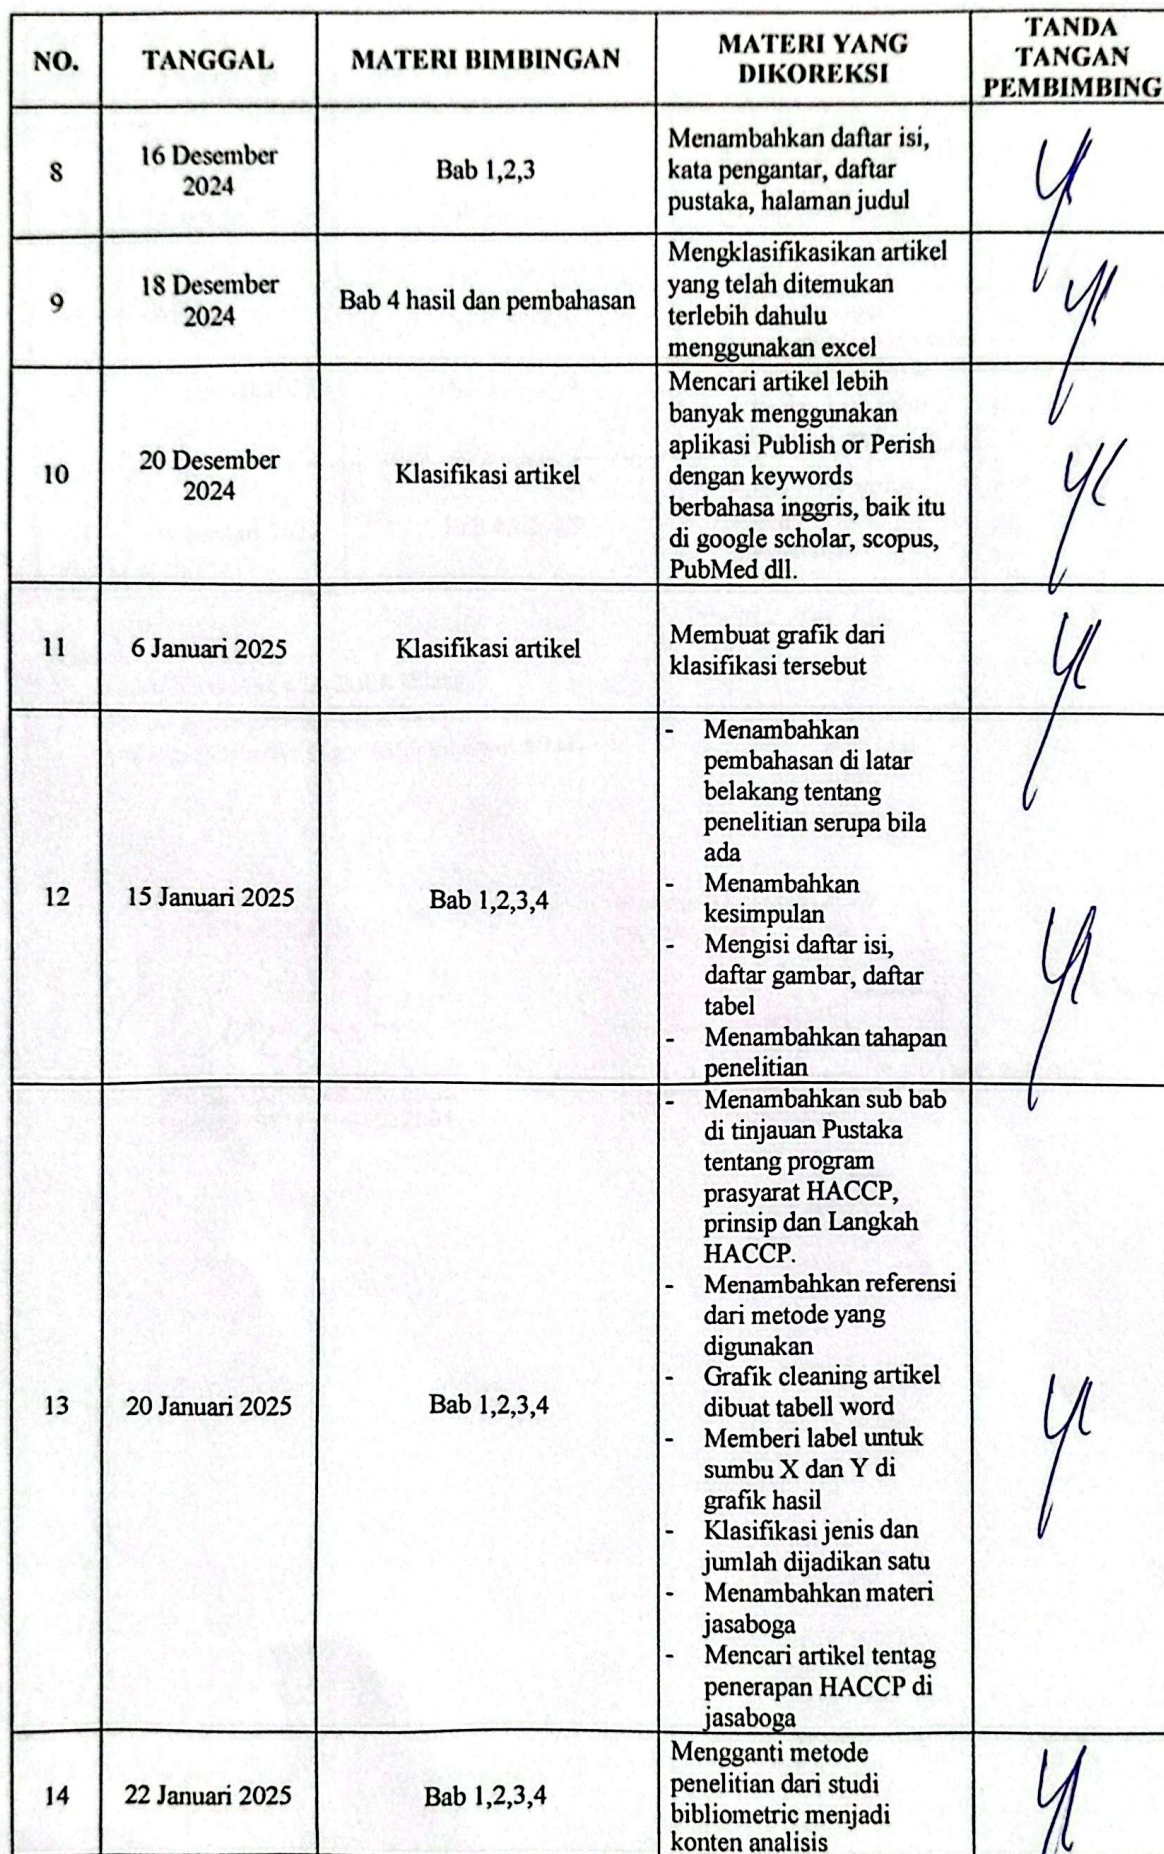 NO.
TANGGAL
MATERI BIMBINGAN
MATERI YANG
DIKOREKSI
TANDA
TANGAN
PEMBIMBING
8
16 Desember
2024
Bab 1,2,3
Menambahkan daftar isi,
kata pengantar, daftar
pustaka, halaman judul
9
18 Desember
2024
Bab 4 hasil dan pembahasan
Mengklasifikasikan artikel
yang telah ditemukan
terlebih dahulu
menggunakan excel
10
20 Desember
2024
Klasifikasi artikel
Mencari artikel lebih
banyak menggunakan
aplikasi Publish or Perish
dengan keywords
berbahasa inggris, baik itu
di google scholar, scopus,
PubMed dll.
11
6 Januari 2025
Klasifikasi artikel
Membuat grafik dari
klasifikasi tersebut
12
15 Januari 2025
Bab 1,2,3,4
- Menambahkan
pembahasan di latar
belakang tentang
penelitian serupa bila
ada
- Menambahkan
kesimpulan
- Mengisi daftar isi,
daftar gambar, daftar
tabel
- Menambahkan tahapan
penelitian
13
20 Januari 2025
Bab 1,2,3,4
- Menambahkan sub bab
di tinjauan Pustaka
tentang program
prasyarat HACCP,
prinsip dan Langkah
HACCP.
- Menambahkan referensi
dari metode yang
digunakan
- Grafik cleaning artikel
dibuat tabell word
- Memberi label untuk
sumbu X dan Y di
grafik hasil
- Klasifikasi jenis dan
jumlah dijadikan satu
- Menambahkan materi
jasaboga
- Mencari artikel tentag
penerapan HACCP di
jasaboga
14
22 Januari 2025
Bab 1,2,3,4
Mengganti metode
penelitian dari studi
bibliometric menjadi
konten analisis